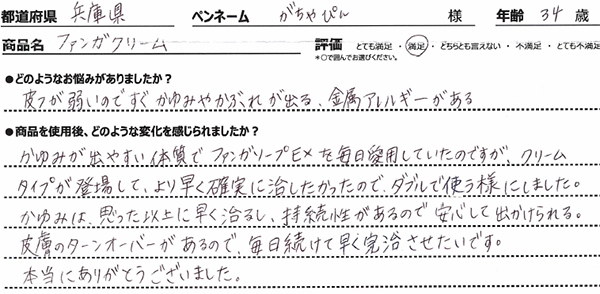 都道府県 兵庫県 ペンネーム がちゃぴん 様 年齢 34 歳
商品名 ファンガクリーム 評価 とても満足・満足・どちらとも言えない・不満足・とても不満足
*○で囲んでお選びください。
●どのようなお悩みがありましたか？
皮フが弱いのですぐかゆみやかぶれが出る、金属アレルギーがある
●商品を使用後、どのような変化を感じられましたか？
かゆみが出やすい体質でファンガソープEXを毎日愛用していたのですが、クリーム
タイプが登場して、より早く確実に治したかったので、ダブルで使う様にしました。
かゆみは、思った以上に早く治るし、持続性があるので安心して出かけられる。
皮膚のターンオーバーがあるので、毎日続けて早く完治させたいです。
本当にありがとうございました。